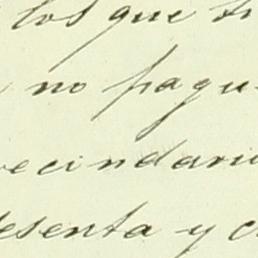 los que
no pagu
vecindario
esenta y c